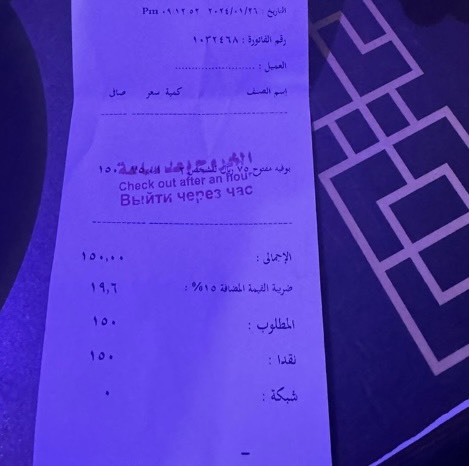 التاريخ : ٢٠٢٤/٠١/٢٦ ٠٩:١٢:٥٢ Pm
رقم الفاتورة : ١٠٣٢٤٦٨
العميل : ........................
إسم الصنف كمية سعر صافي
بوفيه مفتوح ٧٥ ريال للشخص ١٥٠
الخروج بعد ساعة
Check out after an hour
Выйти через час
الإجمالى : ١٥٠,٠٠
ضريبة القيمة المضافة ١٥% : ١٩,٦
المطلوب : ١٥٠
نقدا : ١٥٠
شبكة : ٠